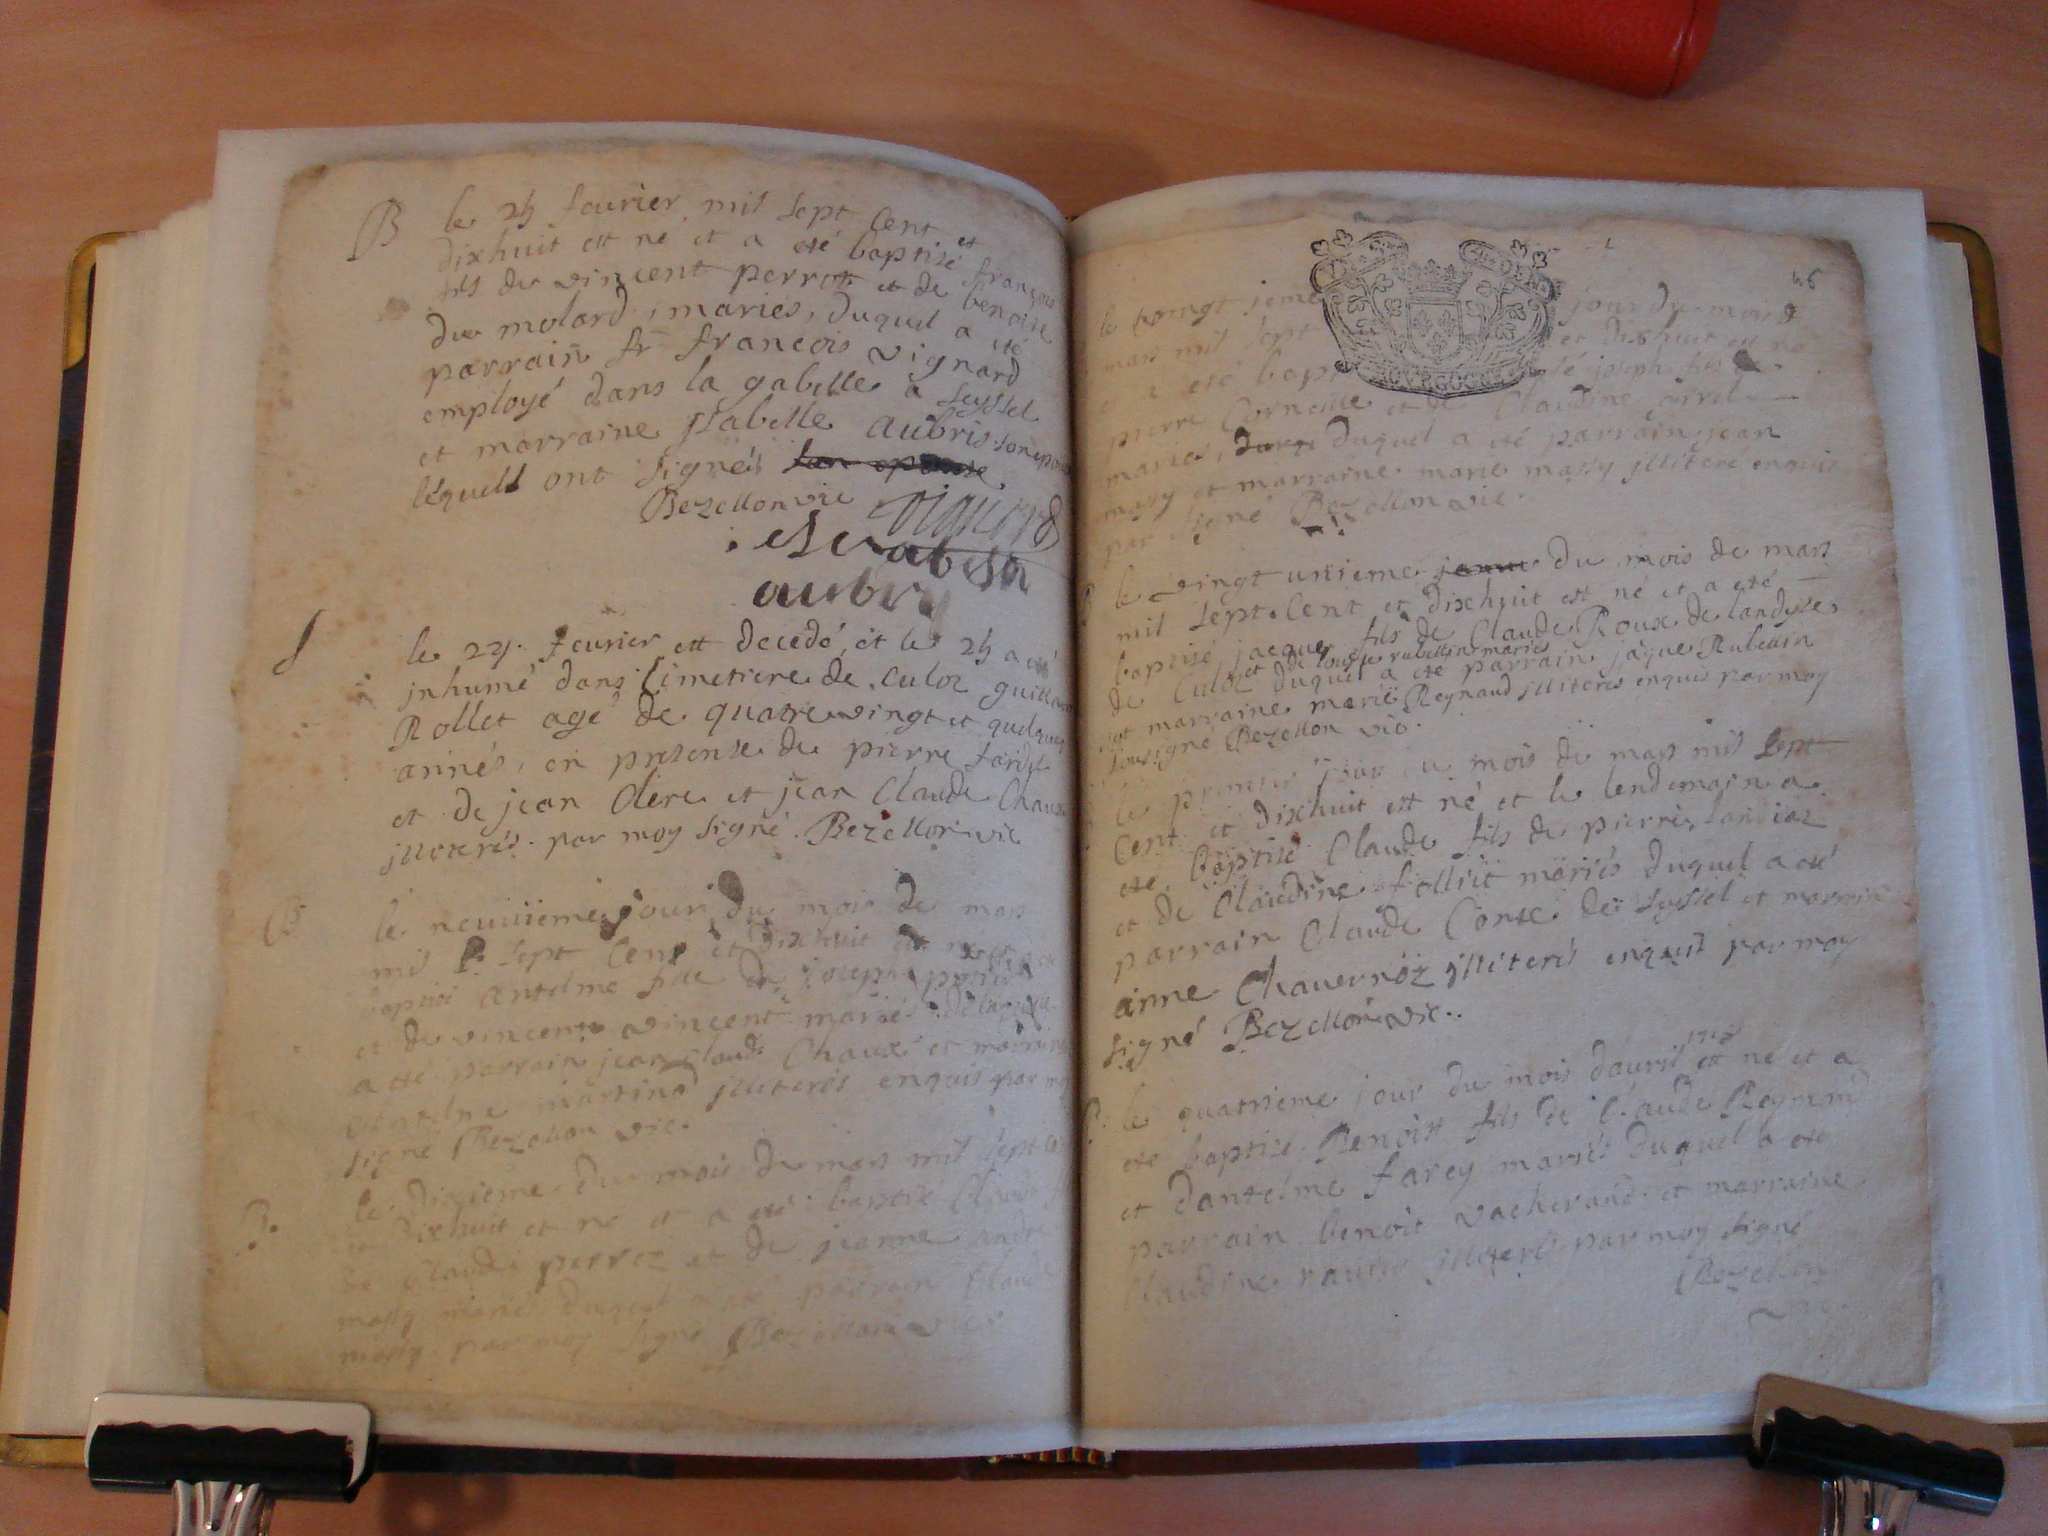 B
le 24 feurier mil sept Cent et
dixhuit est né et a eté baptisé françois
fils de vincent perrot et de benoite
du molard, mariés, duquel a été
parrain fr francois vignard
employé dans la gabelle a seyssel
et marraine jsabelle aubris son epouse
léquels ont signés son epouse
Bezellon vic
aubry
le feurier est decedé, et le 24 a eté
jnhumé dans Cimetiere de Culoz
Rollet agé de quatre vingt et quelques
annés, en presense de pierre
et de jean Clerc et jean Claude Chaux
jlliterés par moy signé. Bezellon vic
B
le neuuieme jour du mois de mars
mil sept Cent et dixhuit est né et a eté
baptisé antelme fils de joseph
et de vincente vincent mariés
a eté parrain jean Claude Chaux et marraine
martinod jlliterés enquis par moy
signé Bezellon vic.
B.
le dixieme du mois de mars mil sept Cent
et dixhuit est né et a eté baptisé Claude
de Claude perrez et de jeanne andré
massy mariés duquel a eté parrain Claude
massy par moy signé Bezellon vic
46
le vingt jeme jour du mois
mars mil sept et dixhuit est né
et a eté bapt sé joseph fils
pierre Corneille et de Claudine
mariés, duquel a eté parrain jean
massy et marraine marie massy jllitere enquis
par signé Bezellon vic.
le vingt unieme du mois de mars
mil sept Cent et dixhuit est né et a eté
baptisé jacques fils de Claude Roux de landyse
et de rubellin mariés
de Culoz duquel a eté parrain jaque Rubellin
et marraine marie Reynaud jlliterés enquis par moy
sousigné Bezellon vic.
le premier jour du mois de mars mil sept
Cent et dixhuit est né et le lendemain a
eté baptisé Claude fils de pierre
et de Claudine folliet mariés duquel a eté
parrain Claude Conte de seyssel et marraine
anne Chauernoz jlliterés enquis par moy
signé Bezellon vic.
1718
le quatrieme jour du mois dauril est né et a
eté baptisé Benoist fils de Claude
et dantelme farcy mariés duquel a eté
parrain benoit vacherand et marraine
Claudine jlliterés par moy signé
Bezellon
vic.